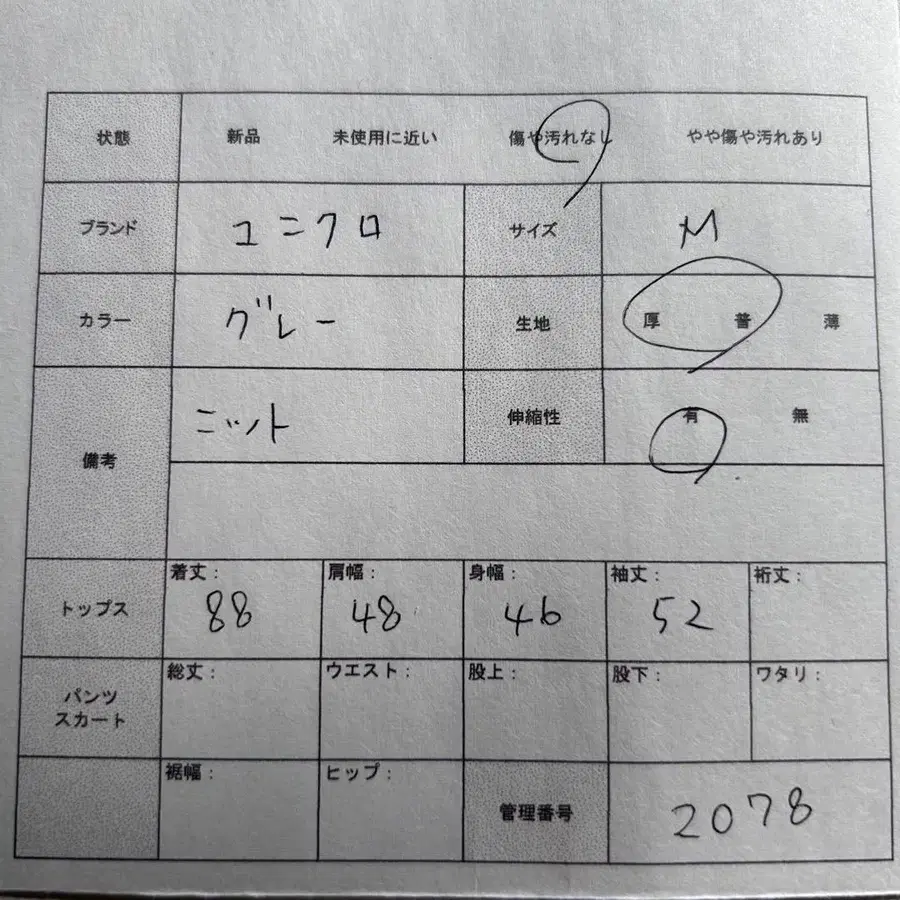 状態 新品 未使用に近い 傷や汚れなし やや傷や汚れあり
ブランド ユニクロ サイズ M
カラー グレー 生地 厚 普 薄
備考 ニット 伸縮性 有 無
トップス 着丈：88 肩幅：48 身幅：46 袖丈：52 裄丈：
パンツ
スカート 総丈： ウエスト： 股上： 股下： ワタリ：
裾幅： ヒップ： 管理番号 2078